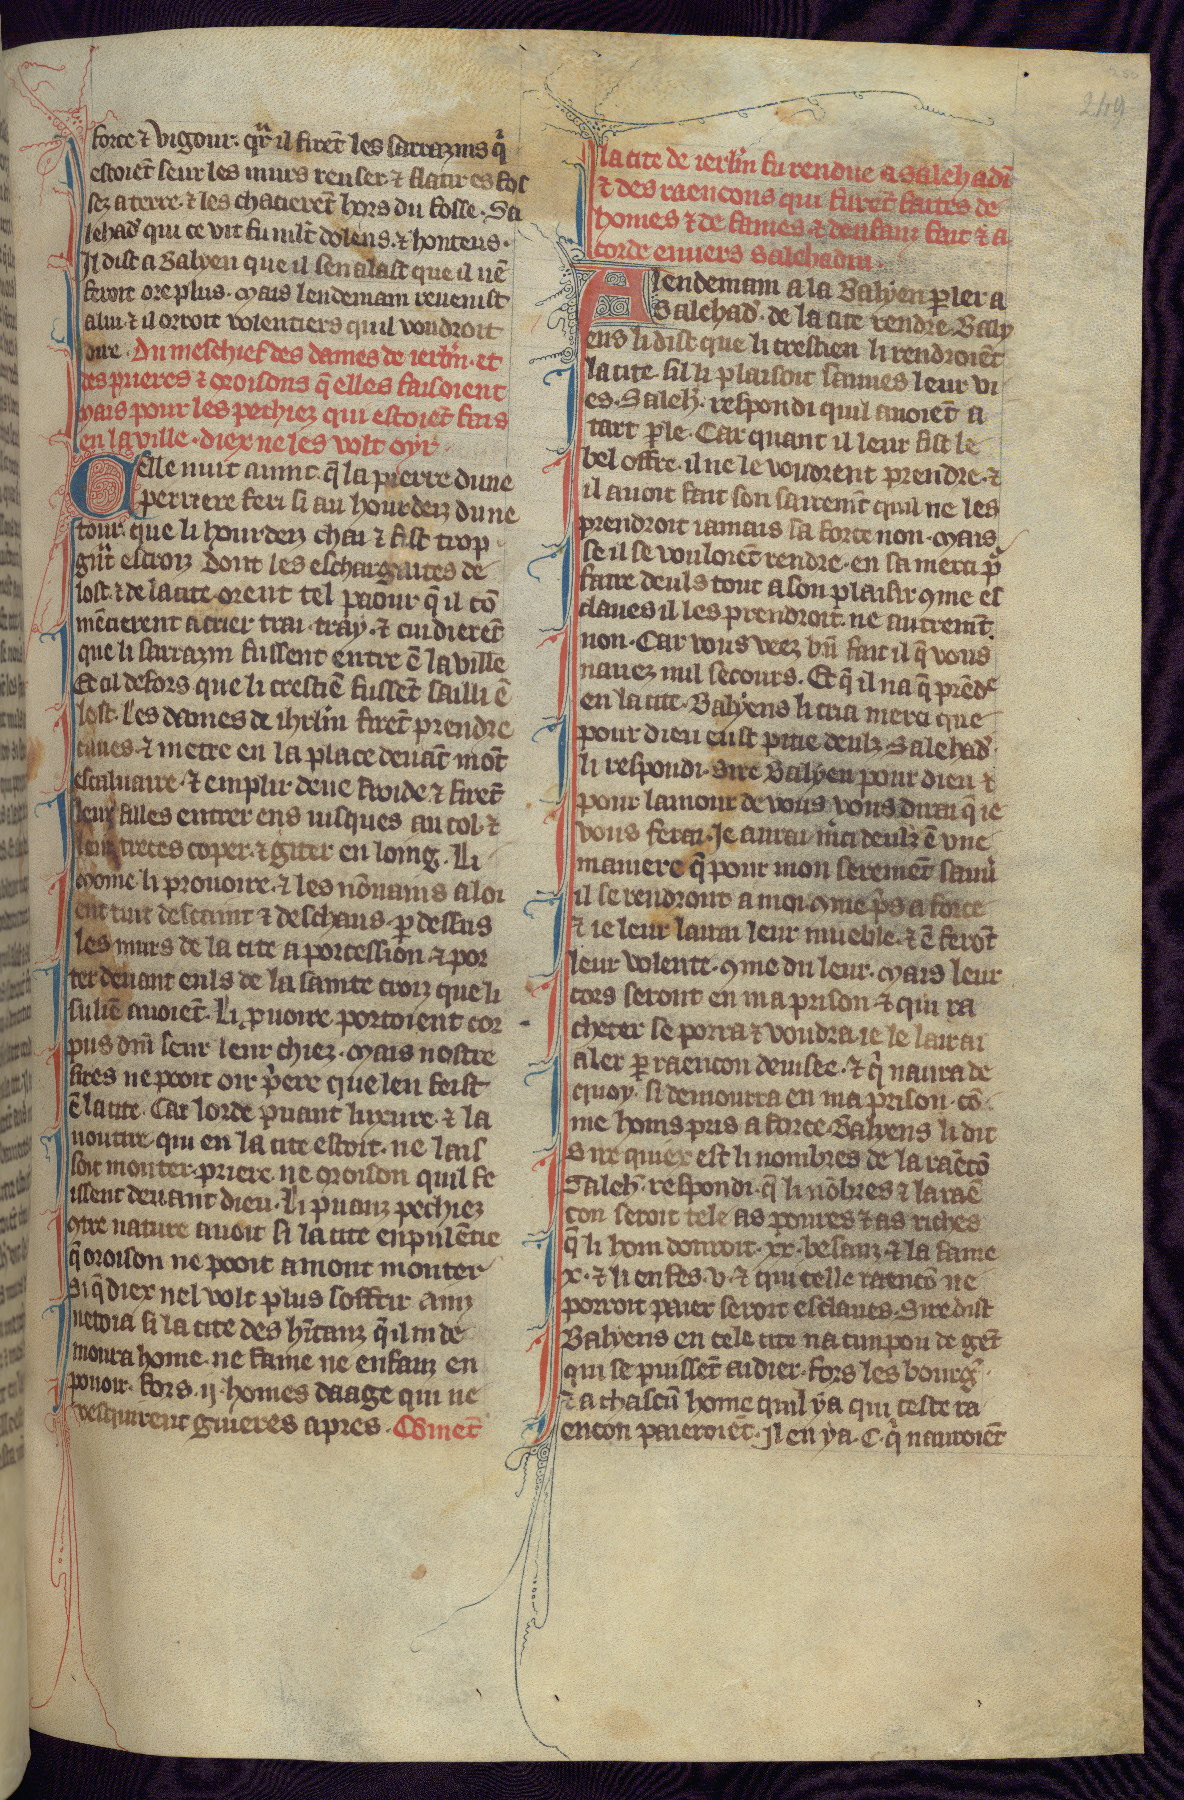 249
force ⁊ vigour. qͣr il firēt les sarrazins qͥ
estoiēt seur les murs reuser ⁊ flatir es fos
sez a terre. ⁊ les chacierēt hors du fosse. Sa
lehad' qui ce vit fu mlt̄ dolens. ⁊ honteus.
Il dist a Balyen que il sen alast que il nē
feroit ore plus. Mais lendemain reuenist
a lui. ⁊ il orroit volentiers quil voudroit
dire. Du meschief des dames de ierlr̄m. et
des prieres ⁊ oroisons q̄ elles faisoient
Mais pour les pechiez qui estoiēt fais
en la ville. diex ne les volt oyr.
Celle nuit auint. q̄ la pierre dune
perriere feri si au hourdeiz dune
tour. que li hourdeiz chai ⁊ fist trop
gͣnt escroiz Dont les eschargaites de
lost. ⁊ de la cite orent tel paour q̄ il cō
mēcierent a crier trai. tray. ⁊ cuidierēt
que li sarrazin fussent entre ē la ville
Et cil defors que li crestiē fussēt sailli ē
lost. Les dames de ihrlr̄m firēt prendre
cuues ⁊ metre en la place deuāt mōt
escaluaire. ⁊ emplir deue froide ⁊ firēt
leur filles entrer ens iusques au col. ⁊
leur treces coper. ⁊ giter en loing. Li
moine li prouoire. ⁊ les nōnains aloi
ent tuit descaint ⁊ deschaus. p̱ dessus
les murs de la cite a porcession. ⁊ por
ter deuant euls de la sainte croiz que li
suliē auoiēt. Li p̱uoire portoient cor
pus dn̄i seur leur chiez. Mais nostre
sires ne pooit oir pͥere que len feist
ē la cite. Car lorde puant luxure. ⁊ la
uoutire. qui en la cite estoit. ne lais
soit monter. priere. ne oroison quil fe
issent deuant dieu. Li puanz pechiez
9tre nature auoit si la cite enpulētie
q̄ oroison ne pooit amont monter
si q̄ diex nel volt plus soffrir. Ainz
netoia si la cite des hītanz q̄ il ni de
moura home. ne fame ne enfanz en
pouoir. fors .ij. homes daage qui ne
vesquirent guieres apres. Cōmēt
la cite de ierlr̄m fu rendue a Salehadī
⁊ des raencons qui furēt faites de
homes ⁊ de fames. ⁊ denfanz fait ⁊ a
corde enuers Salehadin.
A lendemain ala Balyen p̱ler a
Salehad'. de la cite rendre. Baly
ens li dist que li crestien li rendroiēt
la cite. sil li plaisoit sauues leur vi
es. Saleh'. respondi quil auoiēt a
tart p̱le. Car quant il leur fist le
bel offre. il ne le voudrent prendre. ⁊
il auoit fait son sairemt̄ quil ne les
prendroit iamais sa force non. Mais
se il se vouloiēt rendre. en sa merci pͬ
faire deuls tout a son plaisir 9me es
claues il les prendroit. ne autremt̄.
non. Car vous veez bn̄ fait il q̄ vous
nauez nul secours. Et q̄ il na q̄ prēdͬ
en la cite. Balyens li cria merci que
pour dieu eust pitie deulz. Salehad'
li respondi. Sire Balyen pour dieu ⁊
pour lamour de vous. vous dirai q̄ ie
vous ferai. Je aurai mͥci deulz ē vne
maniere q̄ pour mon seremēt sauu'
il se rendront a moi. 9me pͥs a force
⁊ ie leur lairai leur mueble. ⁊ ē ferōt
leur volente. 9me du leur. Mais leur
cors seront en ma prison. ⁊ qui ra
cheter se porra ⁊ voudra. ie le lairai
aler p̱ raencon deuisee. ⁊ qͥ naura de
quoy. si demourra en ma prison. cō
me homs pris a force. Balyens li dit
Sire quiex est li nombres de la raēcō
Saleh'. respondi. q̄ li nōbres ⁊ la raē
con seroit tele as poures ⁊ as riches
q̄ li hom donroit. xx. besanz. ⁊ la fame
x. ⁊ li enfes. v. ⁊ qui celle raencō ne
porroit paier seroit esclaues. Sire dist
Balyens en cele cite na cun pou de gēt
qui se puissēt aidier. fors les bourg'.
⁊ a chascū home quil ya qui ceste ra
encon paieroiēt. Il en ya .C. qͥ nauroiēt